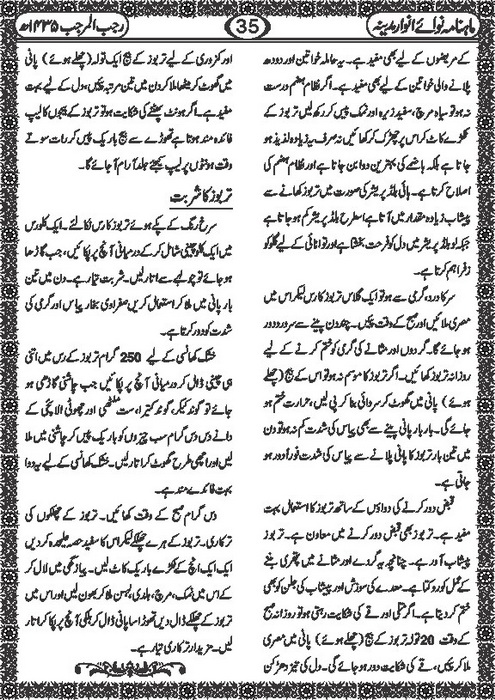 ماہنامہ نوائے انوارِ مدینہ
35
رجب المرجب ۱۴۳۵ھ
کے مریضوں کے لیے بھی مفید ہے۔ یہ حاملہ خواتین اور دودھ
پلانے والی خواتین کے لیے بھی مفید ہے۔ اگر نظام ہضم درست
نہ ہو تو سیاہ مرچ، سفید زیرہ اور نمک پیس کر رکھ لیں تربوز کے
ٹکڑے کاٹ کر اس پر چھڑک کر کھائیں نہ صرف یہ زیادہ لذیذ ہو
جاتا ہے بلکہ ہاضمے کی بہترین دوا بن جاتا ہے اور نظام ہضم کی
اصلاح کرتا ہے۔ ہائی بلڈ پریشر کی صورت میں تربوز کھانے سے
پیشاب زیادہ مقدار میں آتا ہے اسطرح بلڈ پریشر کم ہو جاتا ہے
جبکہ لو بلڈ پریشر میں دل کو فرحت بخشتا ہے اور توانائی کے لیے گلوکو
ز فراہم کرتا ہے۔
سر کا درد، گرمی سے ہو تو ایک گلاس تربوز کا رس لیکر اس میں
مصری ملائیں اور صبح کے وقت پئیں۔ چند دن پینے سے سر درد دور
ہو جائے گا۔ گردوں اور مثانے کی گرمی کو ختم کرنے کے لیے
روزانہ تربوز کھائیں۔ اگر تربوز کا موسم نہ ہو تو اس کے بیج (چھلے
ہوئے) پانی میں گھوٹ کر سردائی بنا کر پی لیں، حرارت ختم ہو
جائے گی۔ بار بار پانی پینے سے بھی پیاس کی شدت کم نہ ہو تو دن
میں تین بار تربوز کا پانی پلانے سے پیاس کی شدت فوراً دور ہو
جاتی ہے۔
قبض دور کرنے کی دواؤں کے ساتھ تربوز کا استعمال بہت
مفید ہے۔ تربوز بھی قبض دور کرنے میں معاون ہے۔ تربوز
پیشاب آور ہے۔ چنانچہ یہ گردے اور مثانے میں پتھری بننے
کے عمل کو روکتا ہے۔ معدے کی سوزش اور پیشاب کی جلن کو بھی
ختم کر دیتا ہے۔ اگر متلی اور قے کی شکایت رہتی ہو تو روزانہ صبح
کے وقت 20 تولہ تربوز کے بیج (چھلے ہوئے) پانی میں مصری
ملا کر پیس، قے کی شکایت دور ہو جائے گی۔ دل کی تیز دھڑکن
اور کمزوری کے لیے تربوز کے بیج ایک تولہ (چھلے ہوئے) پانی
میں گھوٹ کر چھنا ملا کر دن میں تین مرتبہ پئیں، دل کے لیے بہت
مفید ہے۔ اگر ہونٹ پھٹنے کی شکایت ہو تو تربوز کے بیجوں کا لیپ
فائدہ مند ہوتا ہے تھوڑے سے بیج باریک پیس کر رات سوتے
وقت ہونٹوں پر لیپ کیجئے جلد آرام آ جائے گا۔
تربوز کا شربت
سرخ رنگ کے پکے ہوئے تربوز کا رس نکال لئے۔ ایک کلو رس
میں ایک کلو چینی شامل کر کے درمیانی آنچ پر پکائیں، جب گاڑھا
ہو جائے تو چولہے سے اتار لیں۔ شربت تیار ہے۔ دن میں تین
بار پانی میں ملا کر استعمال کریں صفراوی بخار پیاس اور گرمی کی
شدت کو دور کرتا ہے۔
خشک کھانسی کے لیے 250 گرام تربوز کے رس میں اتنی
ہی چینی ڈال کر درمیانی آنچ پر پکائیں جب چاشنی گاڑھی ہو
جائے تو گوند کیکر، گوند کتیرا، ست ملٹھی اور چھوٹی الائچی کے
دانے دس دس گرام سب چیزوں کو باریک پیس کر چاشنی میں ملا
لیں اور اچھی طرح گھوٹ کر اتار لیں۔ خشک کھانسی کے لیے یہ دوا
بہت فائدے مند ہے۔
دس گرام صبح کے وقت کھائیں۔ تربوز کے چھلکوں کی
ترکاری۔ تربوز کے ہرے چھلکے لیکر اس کا سفید حصہ علیحدہ کر دیں
ایک ایک انچ کے ٹکڑے باریک کاٹ لیں۔ پیاز گھی میں لال کر
کے اس میں نمک، مرچ، ہلدی لہسن ملا کر بھون لیں اور اس میں
تربوز کے چھلکے ڈال دیں تھوڑا سا پانی ڈال کر ہلکی آنچ پر پکا کر اتار
لیں۔ مزیدار ترکاری تیار ہے۔